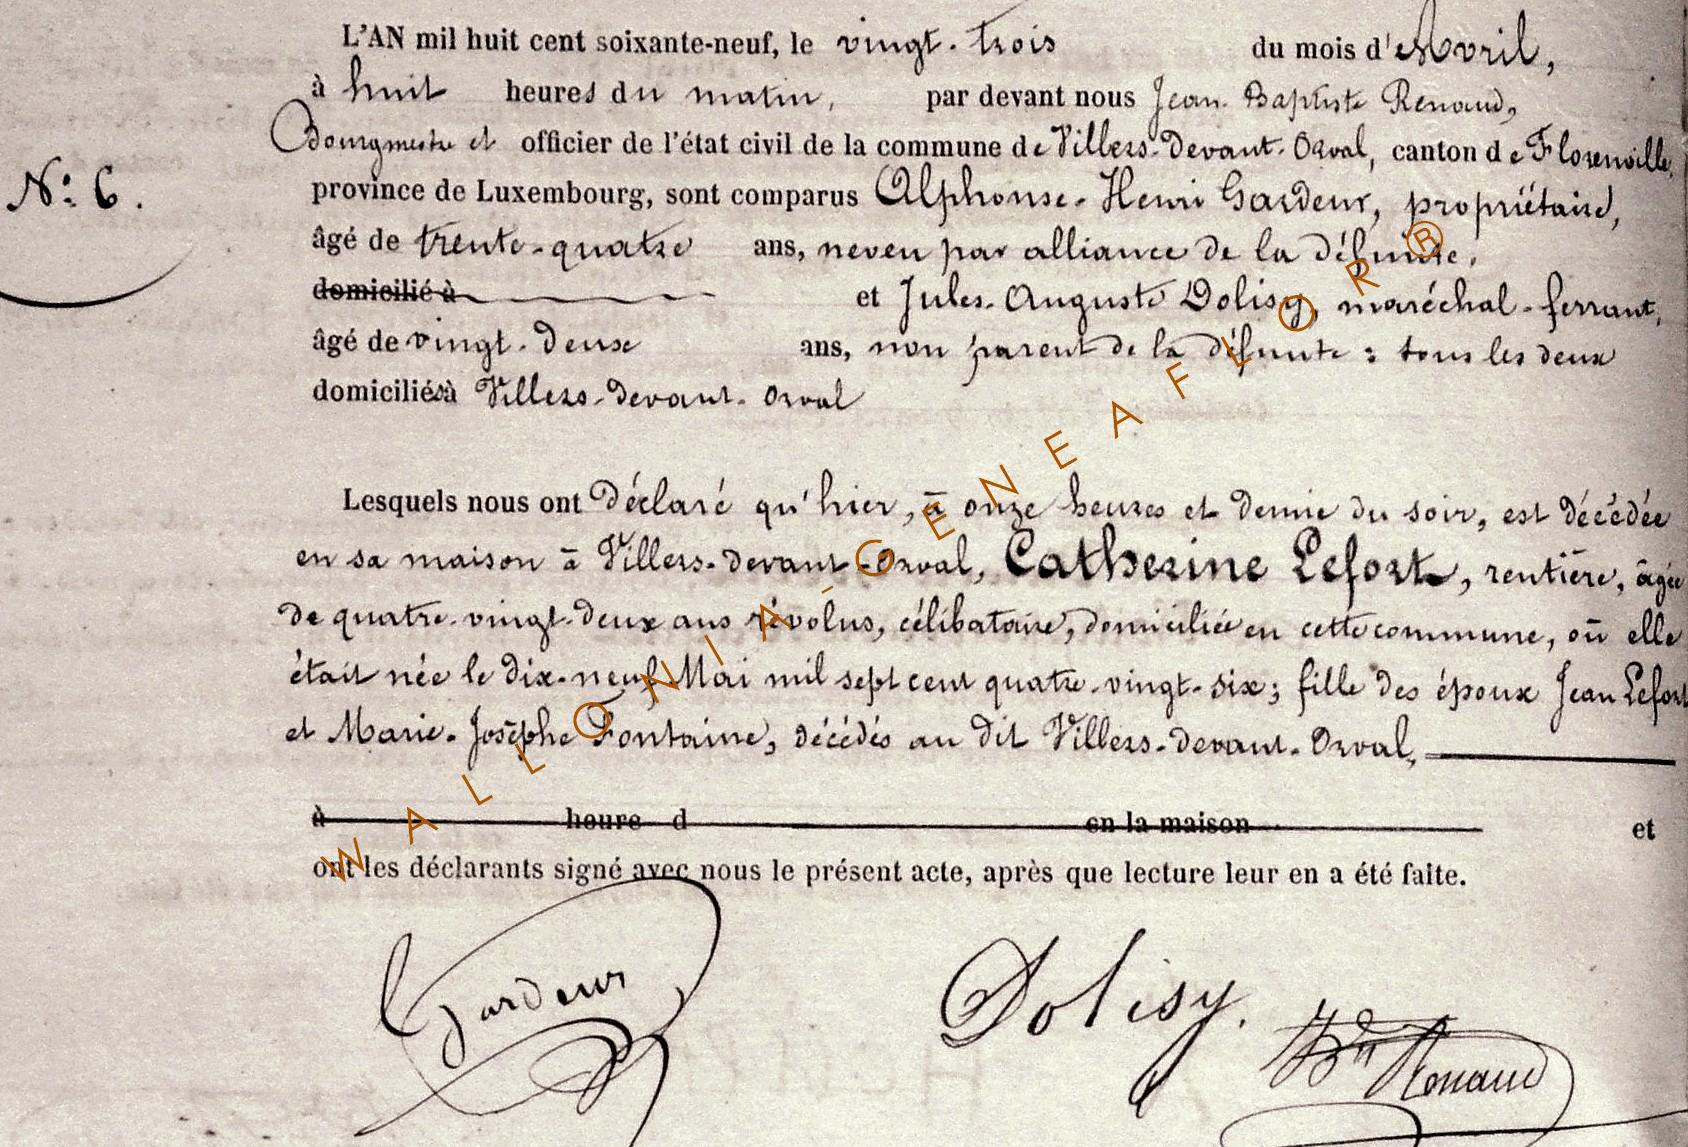 L'AN mil huit cent soixante-neuf, le vingt-trois du mois d'Avril,
à huit heures du matin, par devant nous Jean-Baptiste Renaud,
Bourgmestre et officier de l'état civil de la commune de Villers-devant-Orval, canton de Florenville,
N° 6.
province de Luxembourg, sont comparus Alphonse-Henri Gardeur, propriétaire,
âgé de trente-quatre ans, neveu par alliance de la défunte,
domicilié à et Jules-Auguste Dolisy, maréchal-ferrant,
âgé de vingt-deux ans, non parent de la défunte : tous les deux
domiciliés à Villers-devant-Orval
Lesquels nous ont déclaré qu'hier, à onze heures et demie du soir, est décédée
en sa maison à Villers-devant-Orval, Catherine Lefort, rentière, âgée
de quatre-vingt-deux ans révolus, célibataire, domiciliée en cette commune, où elle
était née le dix-neuf Mai mil sept cent quatre-vingt-six ; fille des époux Jean Lefort
et Marie-Josèphe Fontaine, décédés au dit Villers-devant-Orval,
à heure d en la maison et
ont les déclarants signé avec nous le présent acte, après que lecture leur en a été faite.
Gardeur Dolisy. JBte Renaud
WALLONIA-GENEAFLOR®